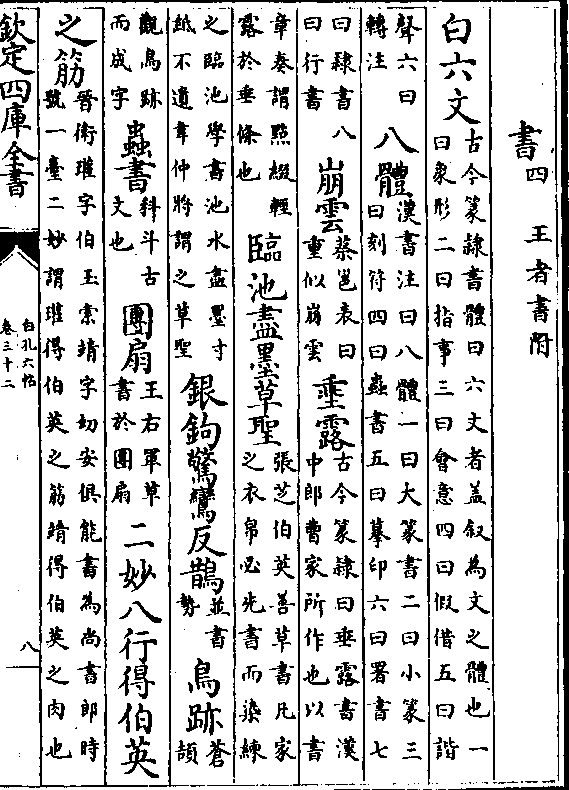 書四 王者書附
白六文 古今篆隸書體曰六文者盖叙為文之體也一曰象形二曰指事三曰會意四曰假借五曰諧
聲六曰轉注 八體 漢書注曰八體一曰大篆書二曰小篆三曰刻符四曰蟲書五曰摹印六曰署書七
曰隸書八曰行書 崩雲 蔡邕表曰重似崩雲 垂露 古今篆隸曰垂露書漢中郎曹家所作也以書
章奏謂㸃綴輕露於垂條也 臨池盡墨草聖 張芝伯英善草書凡家之衣帛必先書而染練
之臨池學書池水盡墨寸紙不遺韋仲將謂之草聖 銀鉤驚鸞反鵲 並書勢 鳥跡 蒼頡
觀鳥跡而成字 蟲書 科斗古文也 團扇 王右軍草書於團扇 二妙八行得伯英
之筋 晉衛瓘字伯玉索靖字幼安俱能書為尚書郎時號一臺二妙謂瓘得伯英之筋靖得伯英之肉也
欽定四庫全書
白孔六帖
卷三十二
八